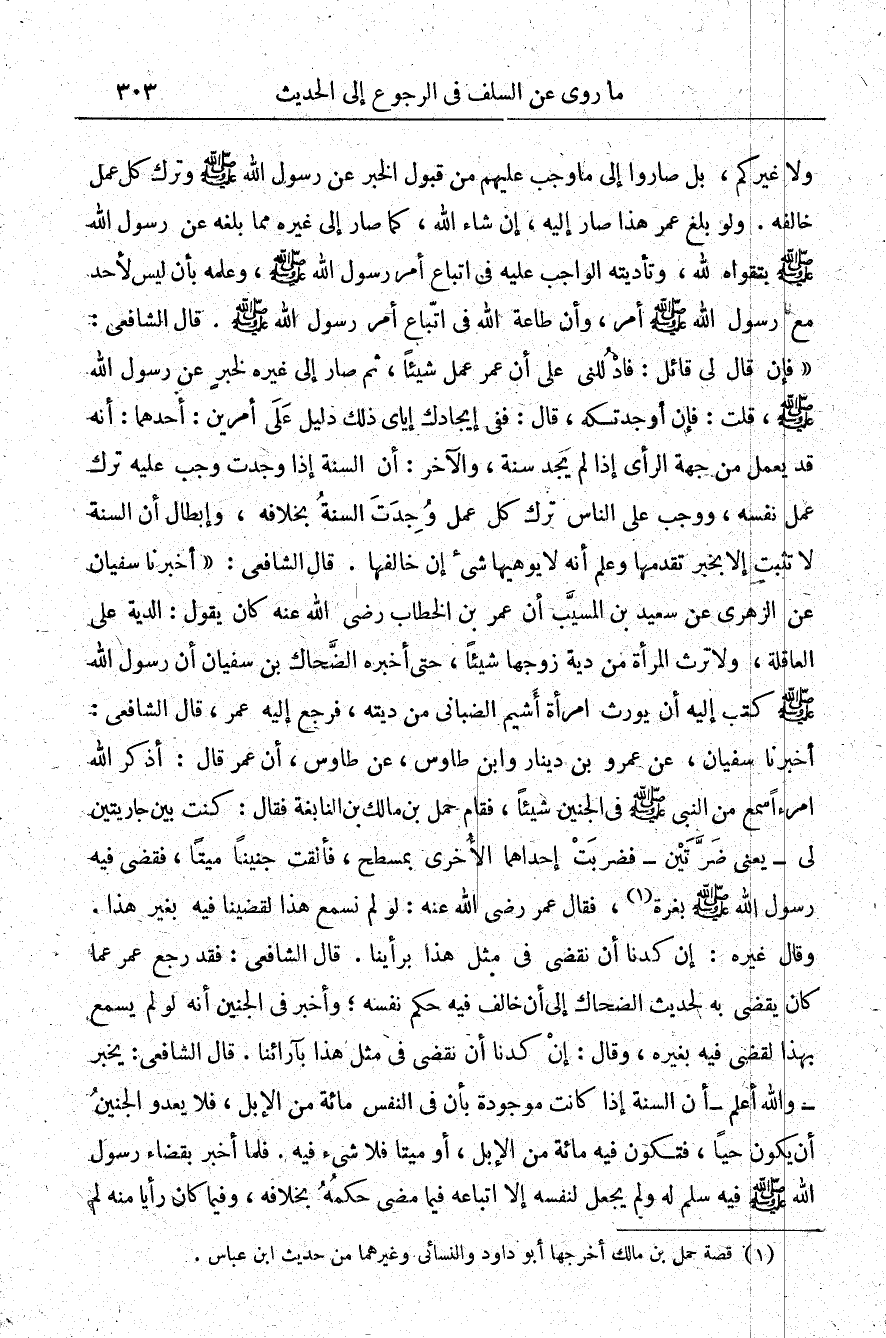 ما روى عن السلف فى الرجوع إلى الحديث ٣٠٣
ولا غيركم ، بل صاروا إلى ما وجب عليهم من قبول الخبر عن رسول الله ﷺ وترك كل عمل
خالفه . ولو بلغ عمر هذا صار إليه ، إن شاء الله ، كما صار إلى غيره مما بلغه عن رسول الله
ﷺ بتقواه لله ، وتأديته الواجب عليه فى اتباع أمر رسول الله ﷺ ، وعلمه بأن ليس لأحد
مع رسول الله ﷺ أمر ، وأن طاعة الله فى اتّباع أمر رسول الله ﷺ . قال الشافعى :
« فإن قال لى قائل : فادْلُلنى على أن عمر عمل شيئاً ، ثم صار إلى غيره لخبرٍ عن رسول الله
ﷺ ، قلت : فإن أوجدتكه ، قال : ففى إيجادك إياى ذلك دليل عَلَى أمرين : أحدهما : أنه
قد يعمل من جهة الرأى إذا لم يَجد سنة ، والآخر : أن السنة إذا وجدت وجب عليه ترك
عمل نفسه ، ووجب على الناس ترك كل عمل وُجِدَتَ السنةُ بخلافه ، وإبطال أن السنة
لا تثبت إلا بخبر تقدمها وعلم أنه لا يوهيها شىء إن خالفها . قال الشافعى : « أخبرنا سفيان
عن الزهرى عن سعيد بن المسيَّب أن عمر بن الخطاب رضى الله عنه كان يقول : الدية على
العاقلة ، ولا ترث المرأة من دية زوجها شيئاً ، حتى أخبره الضَّحاك بن سفيان أن رسول الله
ﷺ كتب إليه أن يورث امرأة أَشيم الضبانى من ديته ، فرجع إليه عمر ، قال الشافعى :
أخبرنا سفيان ، عن عمرو بن دينار وابن طاوس ، عن طاوس ، أن عمر قال : أذكر الله
امرءاً سمع من النبى ﷺ فى الجنين شيئاً ، فقام حمل بن مالك بن النابغة فقال : كنت بين جاريتين
لى ــ يعنى ضَرَّتَيْن ــ فضربَتْ إحداهما الأُخرى بمسطح ، فألقت جنيناً ميتًا ، فقضى فيه
رسول الله ﷺ بغرة(١) ، فقال عمر رضى الله عنه : لو لم نسمع هذا لقضينا فيه بغير هذا .
وقال غيره : إن كدنا أن نقضى فى مثل هذا برأينا . قال الشافعى : فقد رجع عمر عما
كان يقضى به لحديث الضحاك إلى أن خالف فيه حكم نفسه ؛ وأخبر فى الجنين أنه لو لم يسمع
بهذا لقضى فيه بغيره ، وقال : إنْ كدنا أن نقضى فى مثل هذا بآرائنا . قال الشافعى : يخبر
ــ والله أعلم ــ أن السنة إذا كانت موجودة بأن فى النفس مائة من الإبل ، فلا يعدو الجنينُ
أن يكون حياً ، فتكون فيه مائة من الإبل ، أو ميتا فلا شىء فيه . فلما أخبر بقضاء رسول
الله ﷺ فيه سلم له ولم يجعل لنفسه إلا اتباعه فيما مضى حكمُهُ بخلافه ، وفيما كان رأيا منه لم
(١) قصة حمل بن مالك أخرجها أبو داود والنسائى وغيرهما من حديث ابن عباس .